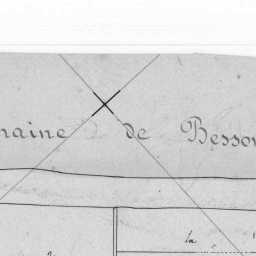 maine de Besson
la